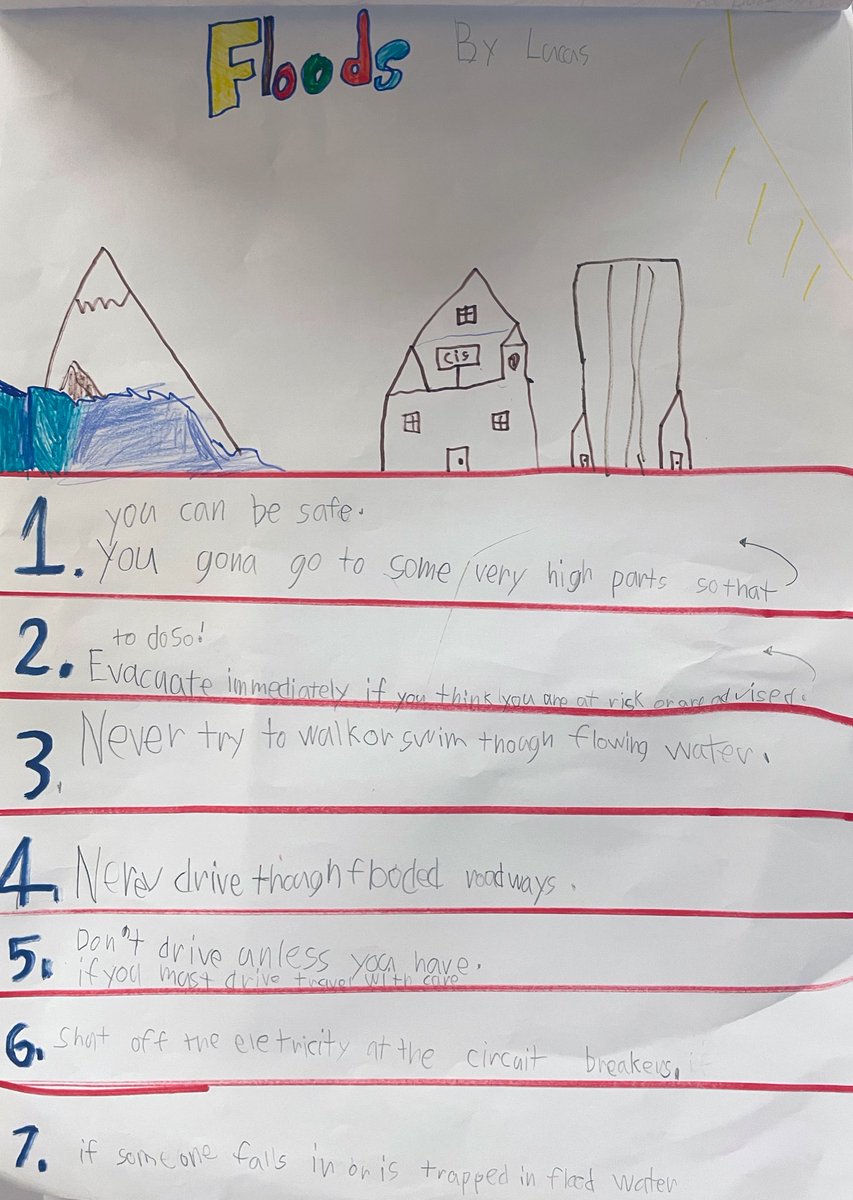 Floods
By Lucas
cis
1. you can be safe.
You gona go to some very high parts so that
2. to do so!
Evacuate immediately if you think you are at risk or are advised.
3. Never try to walk or swim though flowing water.
4. Never drive though flooded roadways.
5. Don't drive unless you have.
if you must drive travel with care
6. Shut off the eletricity at the circuit breakers.
7. if someone falls in or is trapped in flood water